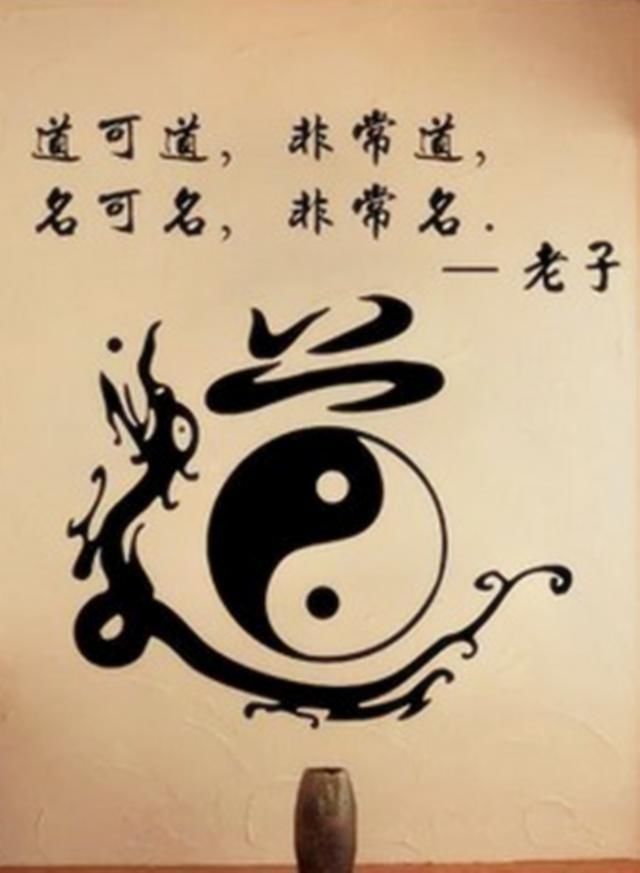 道可道, 非常道,
名可名, 非常名.
— 老子
道